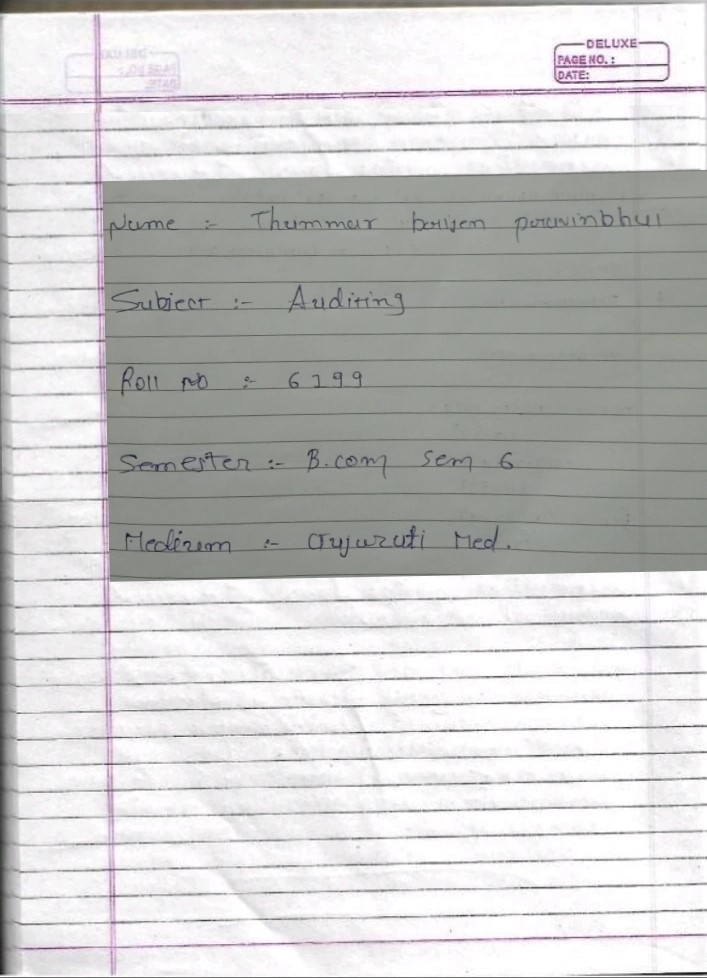 DELUXE
PAGE NO. :
DATE:
Name :- Thummar
Subject :- Auditing
Roll no :- 6199
Semester :- B.com sem 6
Medium :- Gujurati Med.